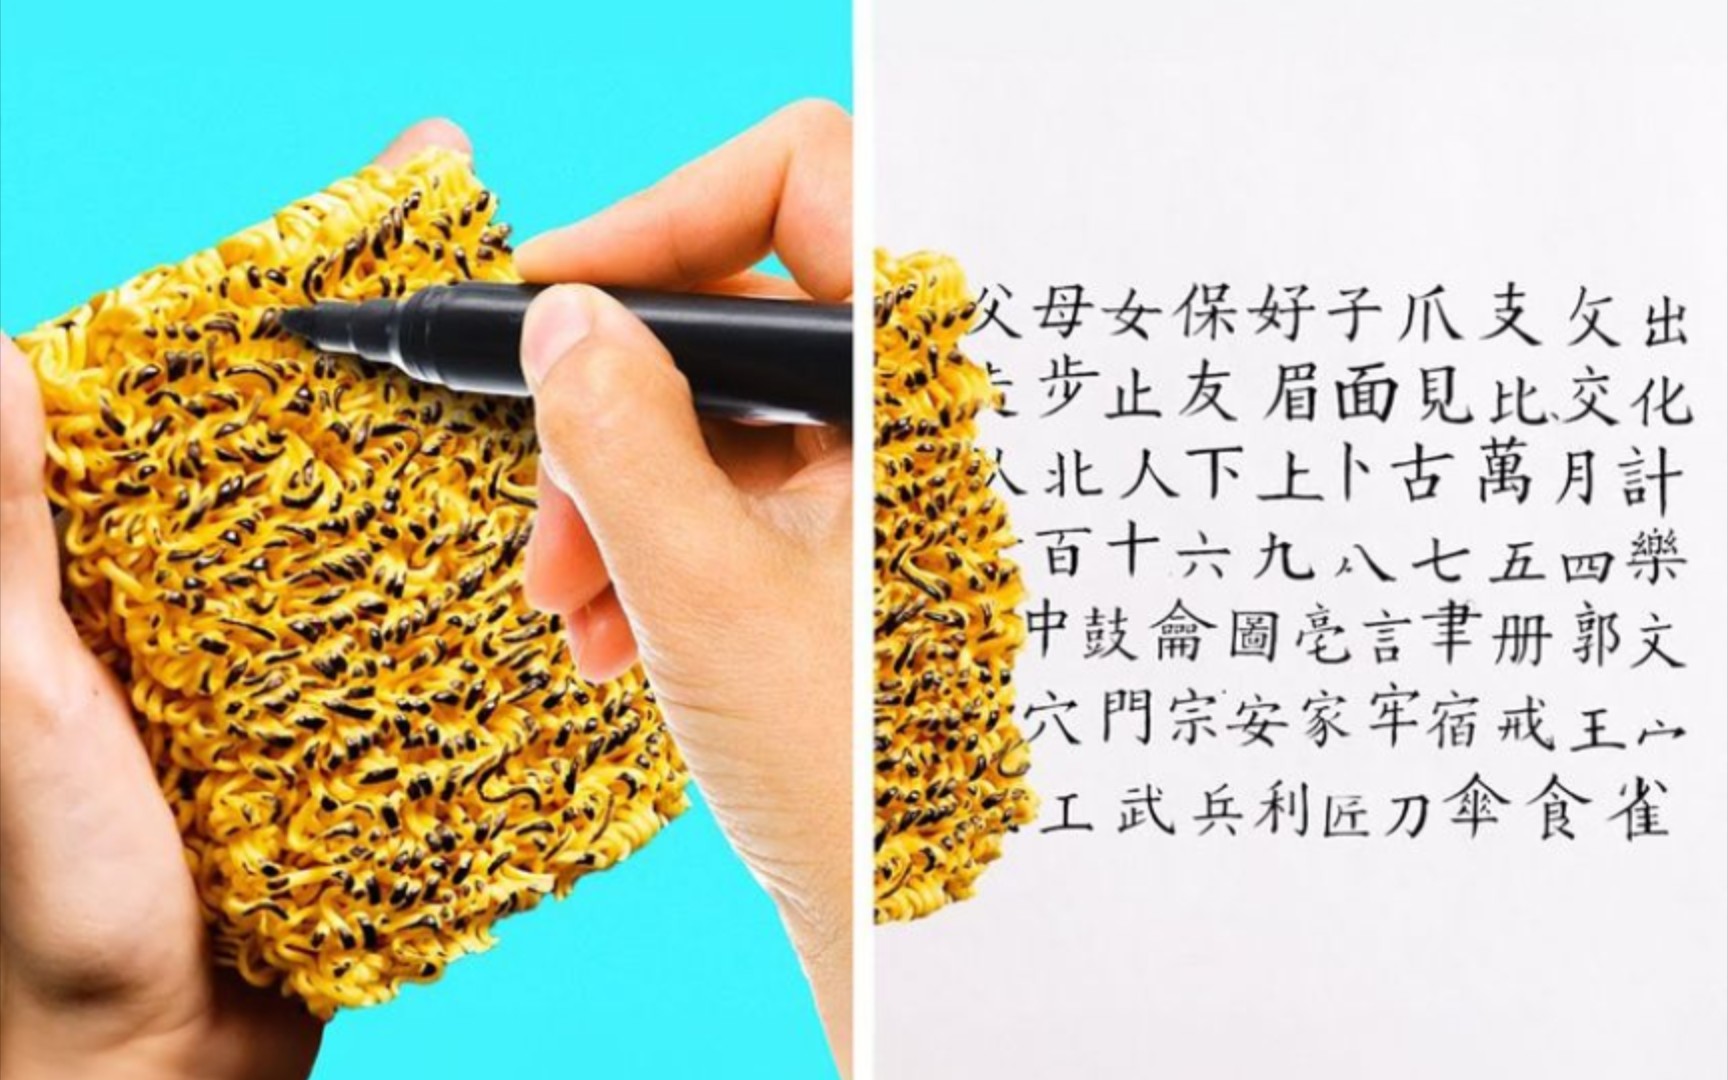 父母女保好子爪支攵出
步止友眉面見比交化
北人下上卜古萬月計
百十六九八七五四樂
中鼓龠圖毫言聿册郭文
穴門宗安家牢宿戒王宀
工武兵利匠刀傘食雀